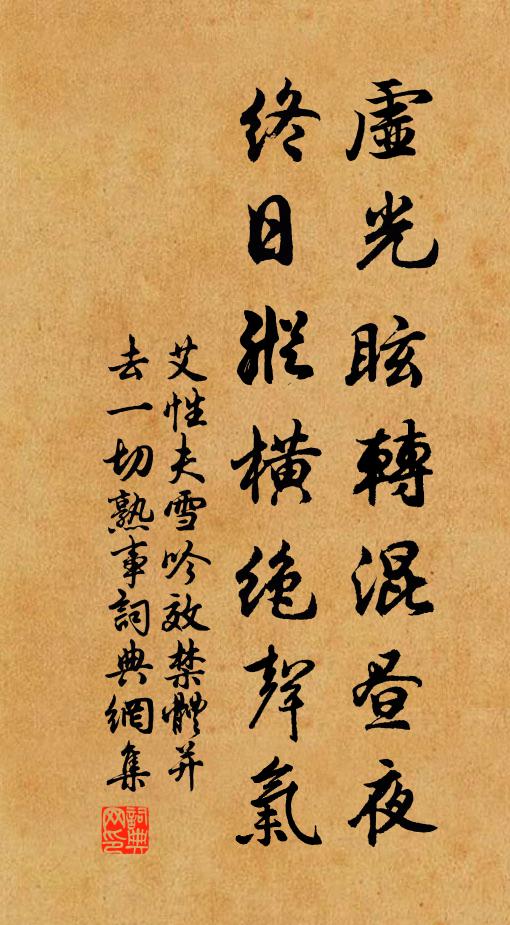 虛光眩轉混晝夜
終日縱橫絶聲氣
艾性夫雪吟效禁體并
去一切熟事詞典網集
詞典網印